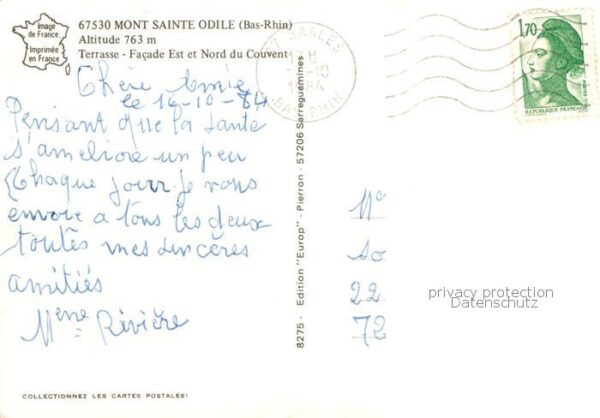 Image
de France
Imprimée
en France
67530 MONT SAINTE ODILE (Bas-Rhin)
Altitude 763 m
Terrasse - Façade Est et Nord du Couvent
Chère Amie
le 14-10-84
Pensant que la santé
s'améliore un peu
Chaque jour je vous
envoie a tous les deux
toutes mes sincères
amitiés
Mme Rivière
COLLECTIONNEZ LES CARTES POSTALES!
8275 - Edition "Europ" - Pierron - 57206 Sarreguemines
SAALES
-10
BAS-RHIN
1,70
REPUBLIQUE FRANÇAISE
Me
So
22
72
privacy protection
Datenschutz